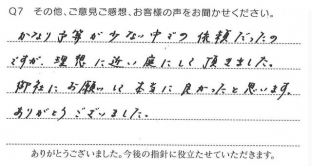 Q7 その他、ご意見ご感想、お客様の声をお聞かせください。
かなり予算が少ない中での依頼だったの
ですが、理想に近い庭にして頂きました。
御社にお願いして本当に良かったと思います。
ありがとうございました。
ありがとうございました。今後の指針に役立たせていただきます。